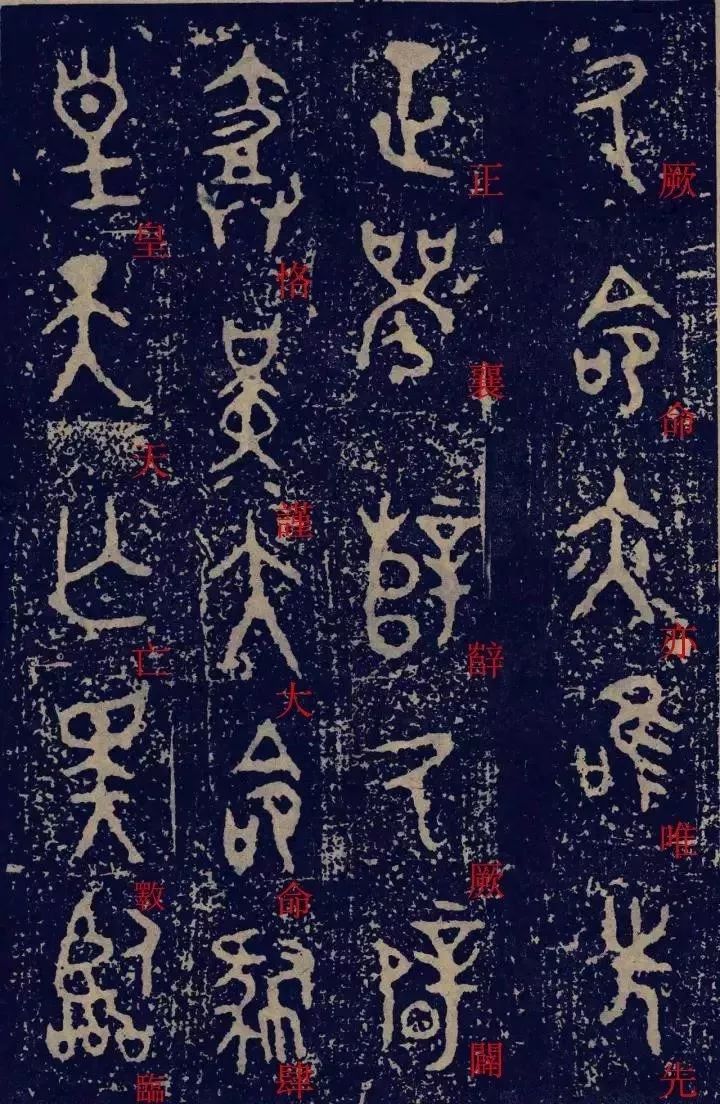 厥命亦唯先
正襄辥厥闢
恪謹大命肆
皇天亡斁臨